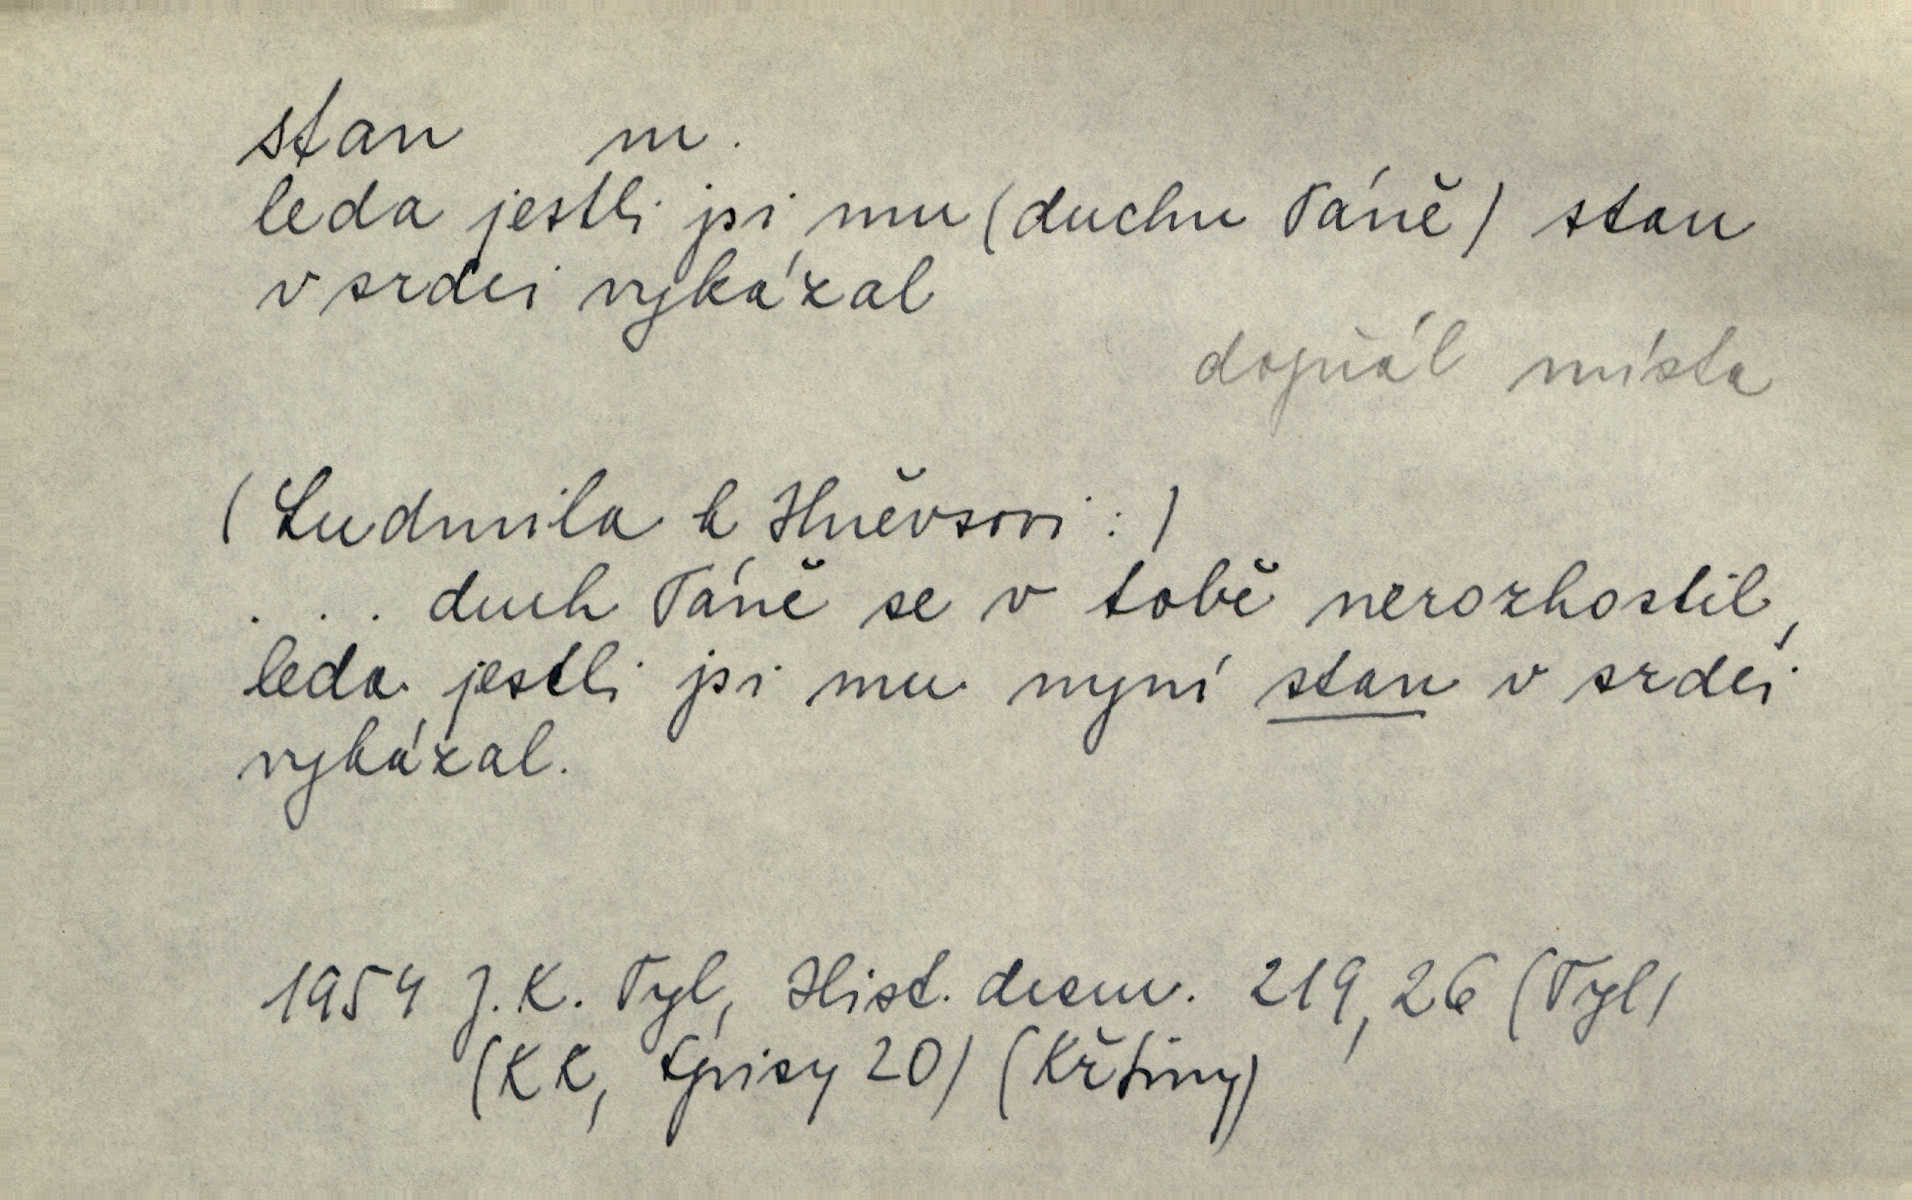 stan m.
leda jestli jsi mu (duchu Táně) stan
v srdci vykázal
dopřál místa
(Ludmila k Hněvsovi:)
... duch Táně se v tobě nerozhostil,
leda jestli jsi mu nyní stan v srdci
vykázal.
1954 J. K. Tyl, Hist. dram. 219,26 (Tyl)
(KK, Spisy 20) (Křtiny)